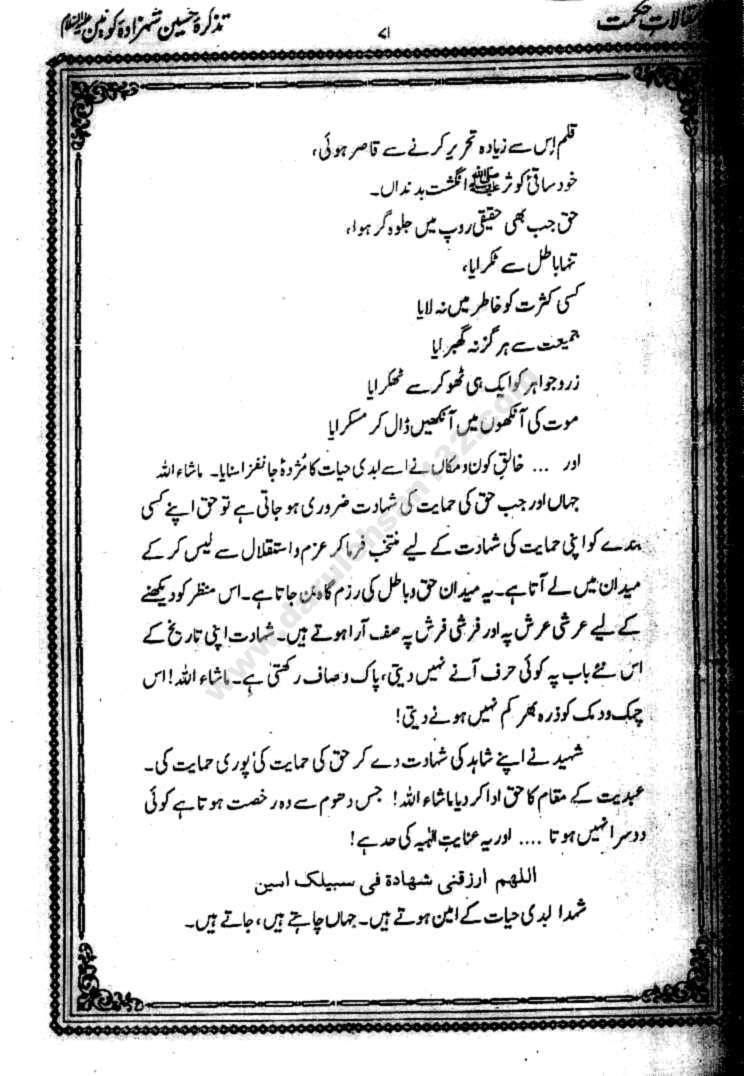 مقالات حکمت
۷۱
تذکرۂ حسین شہزادۂ کونین علیہ السلام
قلم اِس سے زیادہ تحریر کرنے سے قاصر ہوئی،
خود ساقیٔ کوثر ﷺ انگشت بدنداں۔
حق جب بھی حقیقی روپ میں جلوہ گر ہوا،
تنہا باطل سے ٹکرایا،
کسی کثرت کو خاطر میں نہ لایا
جمیعت سے ہرگز نہ گھبرایا
زر و جواہر کو ایک ہی ٹھوکر سے ٹھکرایا
موت کی آنکھوں میں آنکھیں ڈال کر مسکرایا
اور ... خالقِ کون و مکاں نے اسے ابدی حیات کا مُژدۂ جانفزا سنایا۔ ماشاء اللہ
جہاں اور جب حق کی حمایت کی شہادت ضروری ہو جاتی ہے تو حق اپنے کسی
بندے کو اپنی حمایت کی شہادت کے لیے منتخب فرما کر عزم و استقلال سے لیس کر کے
میدان میں لے آتا ہے۔ یہ میدان حق و باطل کی رزم گاہ بن جاتا ہے۔ اس منظر کو دیکھنے
کے لیے عرشی عرش پہ اور فرشی فرش پہ صف آرا ہوتے ہیں۔ شہادت اپنی تاریخ کے
اس نئے باب پہ کوئی حرف آنے نہیں دیتی، پاک و صاف رکھتی ہے۔ ماشاء اللہ! اس
چمک و دمک کو ذرہ بھر کم نہیں ہونے دیتی!
شہید نے اپنے شاہد کی شہادت دے کر حق کی حمایت کی پوری حمایت کی۔
عبدیت کے مقام کا حق ادا کر دیا ماشاء اللہ! جس دھوم سے وہ رخصت ہوتا ہے کوئی
دوسرا نہیں ہوتا .... اور یہ عنایتِ الٰہیہ کی حد ہے!
اللهم ارزقنی شهادة فی سبیلک امین
شہدا ابدی حیات کے امین ہوتے ہیں۔ جہاں چاہتے ہیں، جاتے ہیں۔